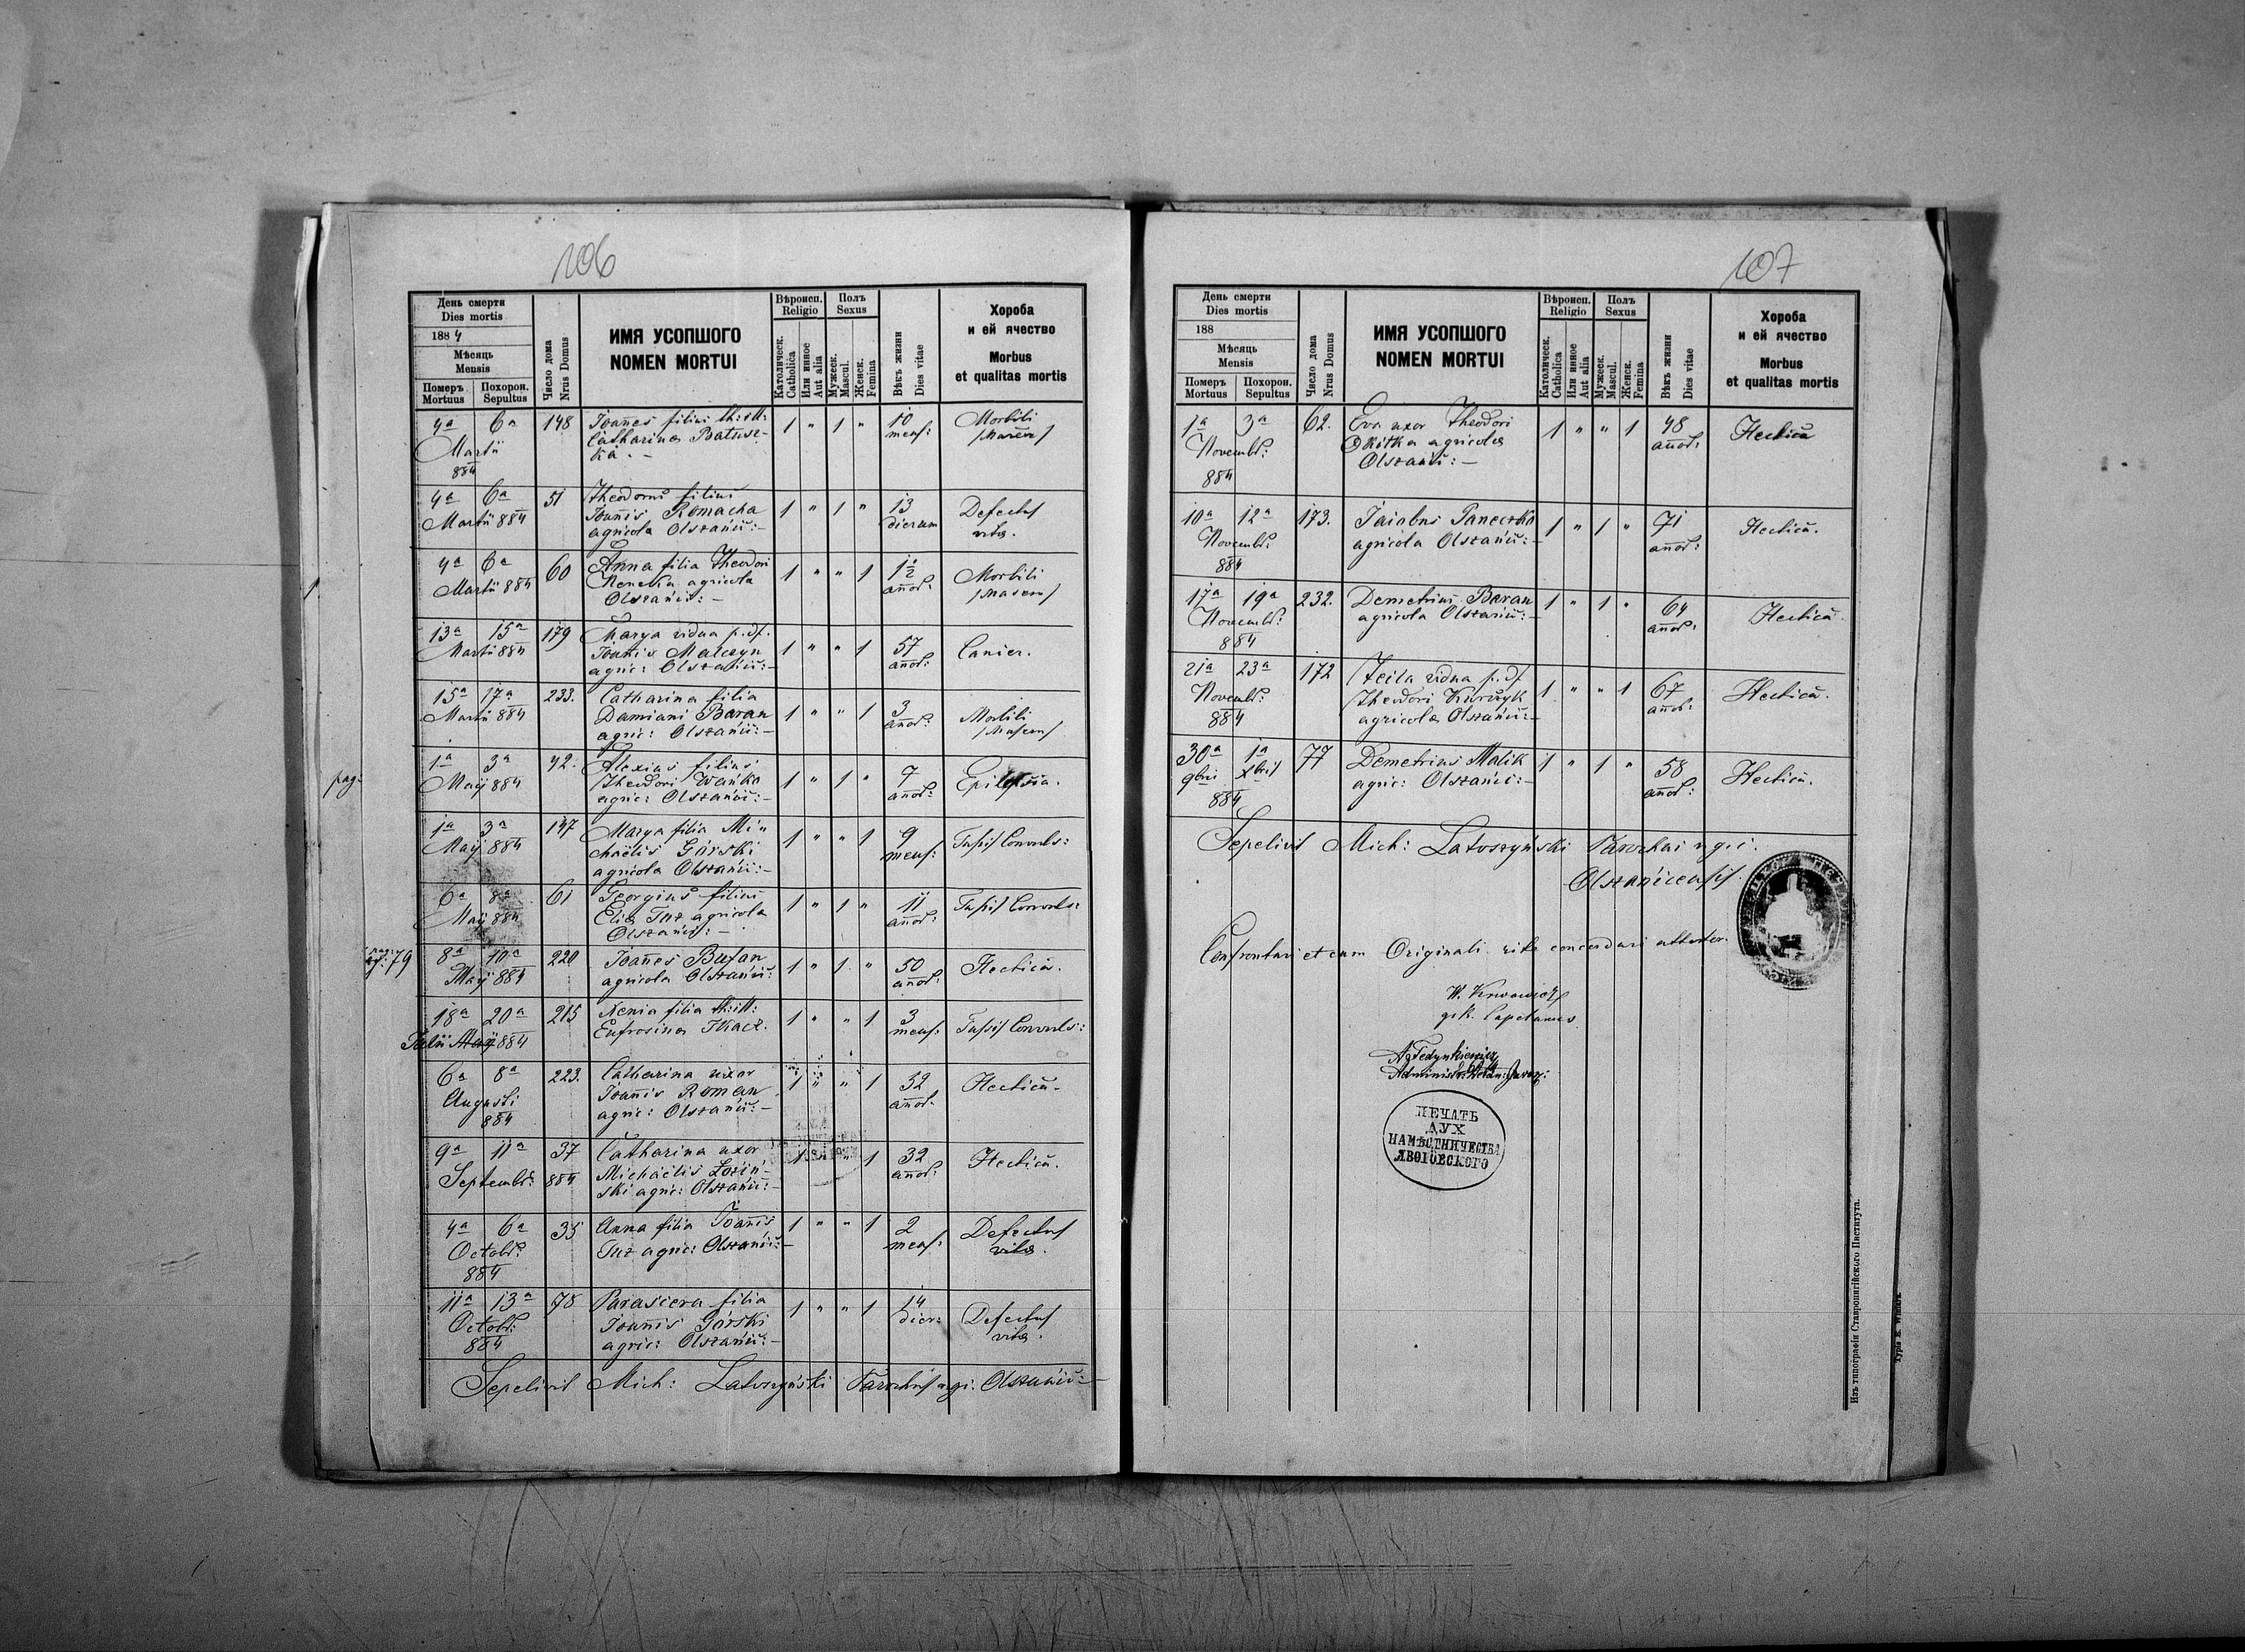 106
День смерти
Dies mortis
1884
Мѣсяць
Mensis
Померъ
Mortuus
Похорон.
Sepultus
Число дома
Nrus Domus
ИМЯ УСОПШОГО
NOMEN MORTUI
Вѣроисп.
Religio
Католическ.
Catholica
Или инное
Aut alia
Полъ
Sexus
Мужеск.
Mascul.
Женск.
Femina
Вѣкъ жизни
Dies vitae
Хороба
и ей ячество
Morbus
et qualitas mortis
4a 6a 148 Joannes filius
Catharina Batusz- 1 " 1 " 10 mens: Morbili
Martii ka. -
884
4a 6a 51 Theodorus filius
Martii 884 Joannis Romacha 1 " 1 " 13 dierum Defectus
agricola Olszanic: - vitæ.
4a 6a 60 Anna filia Theodori
Martii 884 agricola 1 " " 1 1½ annor: Morbili
Olszanic: -
13a 15a 179 Marya vidua p. df.
Martii 884 Joannis 1 " " 1 57 annor: Cancer.
agric: Olszanic: -
15a 17a 233. Catharina filia
Martii 884 Damiani Baran 1 " " 1 3 annor: Morbili
agric: Olszanic: -
pag.
1a 3a 42. Alexius filius
Maij 884 Theodori Wańko 1 " 1 " 7 annor: Epilepsia.
agric: Olszanic: -
1a 3a 147 Marya filia Mi"
Maij 884 chaëlis Górski 1 " " 1 9 mens: Tussis Convuls:
agricola Olszanic: -
6a 8a 61 Georgius filius
Maij 884 Eliæ Tuz agricola 1 " 1 " 11 annor: Tussis Convuls:
Olszanic: -
79
8a 10a 220 Joannes
Maij 884 agricola Olszanic: 1 " 1 " 50 annor: Hectica.
18a 20a 215 Xenia filia
Julii 884 Eufrosina Tkacz. 1 " " 1 3 mens: Tussis Convuls:
6a 8a 223. Catharina uxor
Augusti Joannis Roman 1 " " 1 52 annor. Hectica.
884 agric: Olszanic: -
9a 11a 37 Catharina uxor
Septembr: 884 Michaëlis Łoziń- 1 " " 1 32 annor: Hectica.
ski agric: Olszanic: -
4a 6a 35 Anna filia Joannis 1 " " 1 2 mens: Defectus
Octobr: Tuz agric: Olszanic: - vitæ.
884
11a 13a 78 filia 1 " " 1 14 dier: Defectus
Octobr: Joannis Górski vitæ.
884 agric: Olszanic: -
Sepelivit Mich: Latoszyński Olszanic: -
107
День смерти
Dies mortis
188
Мѣсяць
Mensis
Померъ
Mortuus
Похорон.
Sepultus
Число дома
Nrus Domus
ИМЯ УСОПШОГО
NOMEN MORTUI
Вѣроисп.
Religio
Католическ.
Catholica
Или инное
Aut alia
Полъ
Sexus
Мужеск.
Mascul.
Женск.
Femina
Вѣкъ жизни
Dies vitae
Хороба
и ей ячество
Morbus
et qualitas mortis
1a 3a 62. Eva uxor Theodori
Novembr: agricolæ 1 " " 1 48 annor: Hectica
884 Olszanic: -
10a 12a 173. Jacobus
Novembr: agricola Olszanic: - 1 " 1 " 71 annor: Hectica.
884
17a 19a 232. Demetrius Baran 1 " 1 " 64 annor: Hectica.
Novembr: agricola Olszanic: -
884
21a 23a 172 Tecla vidua p. df
Novembr: Theodori 1 " " 1 67 annor: Hectica.
884 agricolæ Olszanic: -
30a 1a 77 Demetrius Malik 1 " 1 " 58 annor: Hectica.
9bri Xbris agric: Olszanic: -
884
Sepelivit Mich: Latoszyński
Olszanicensis.
et cum Originali rite concordari attestor.
ПЕЧАТЬ
ДУХ
НАМѢСТНИЧЕСТВА
ЯВОРОВСКОГО
Изъ типографіи Ставропигійского Института.